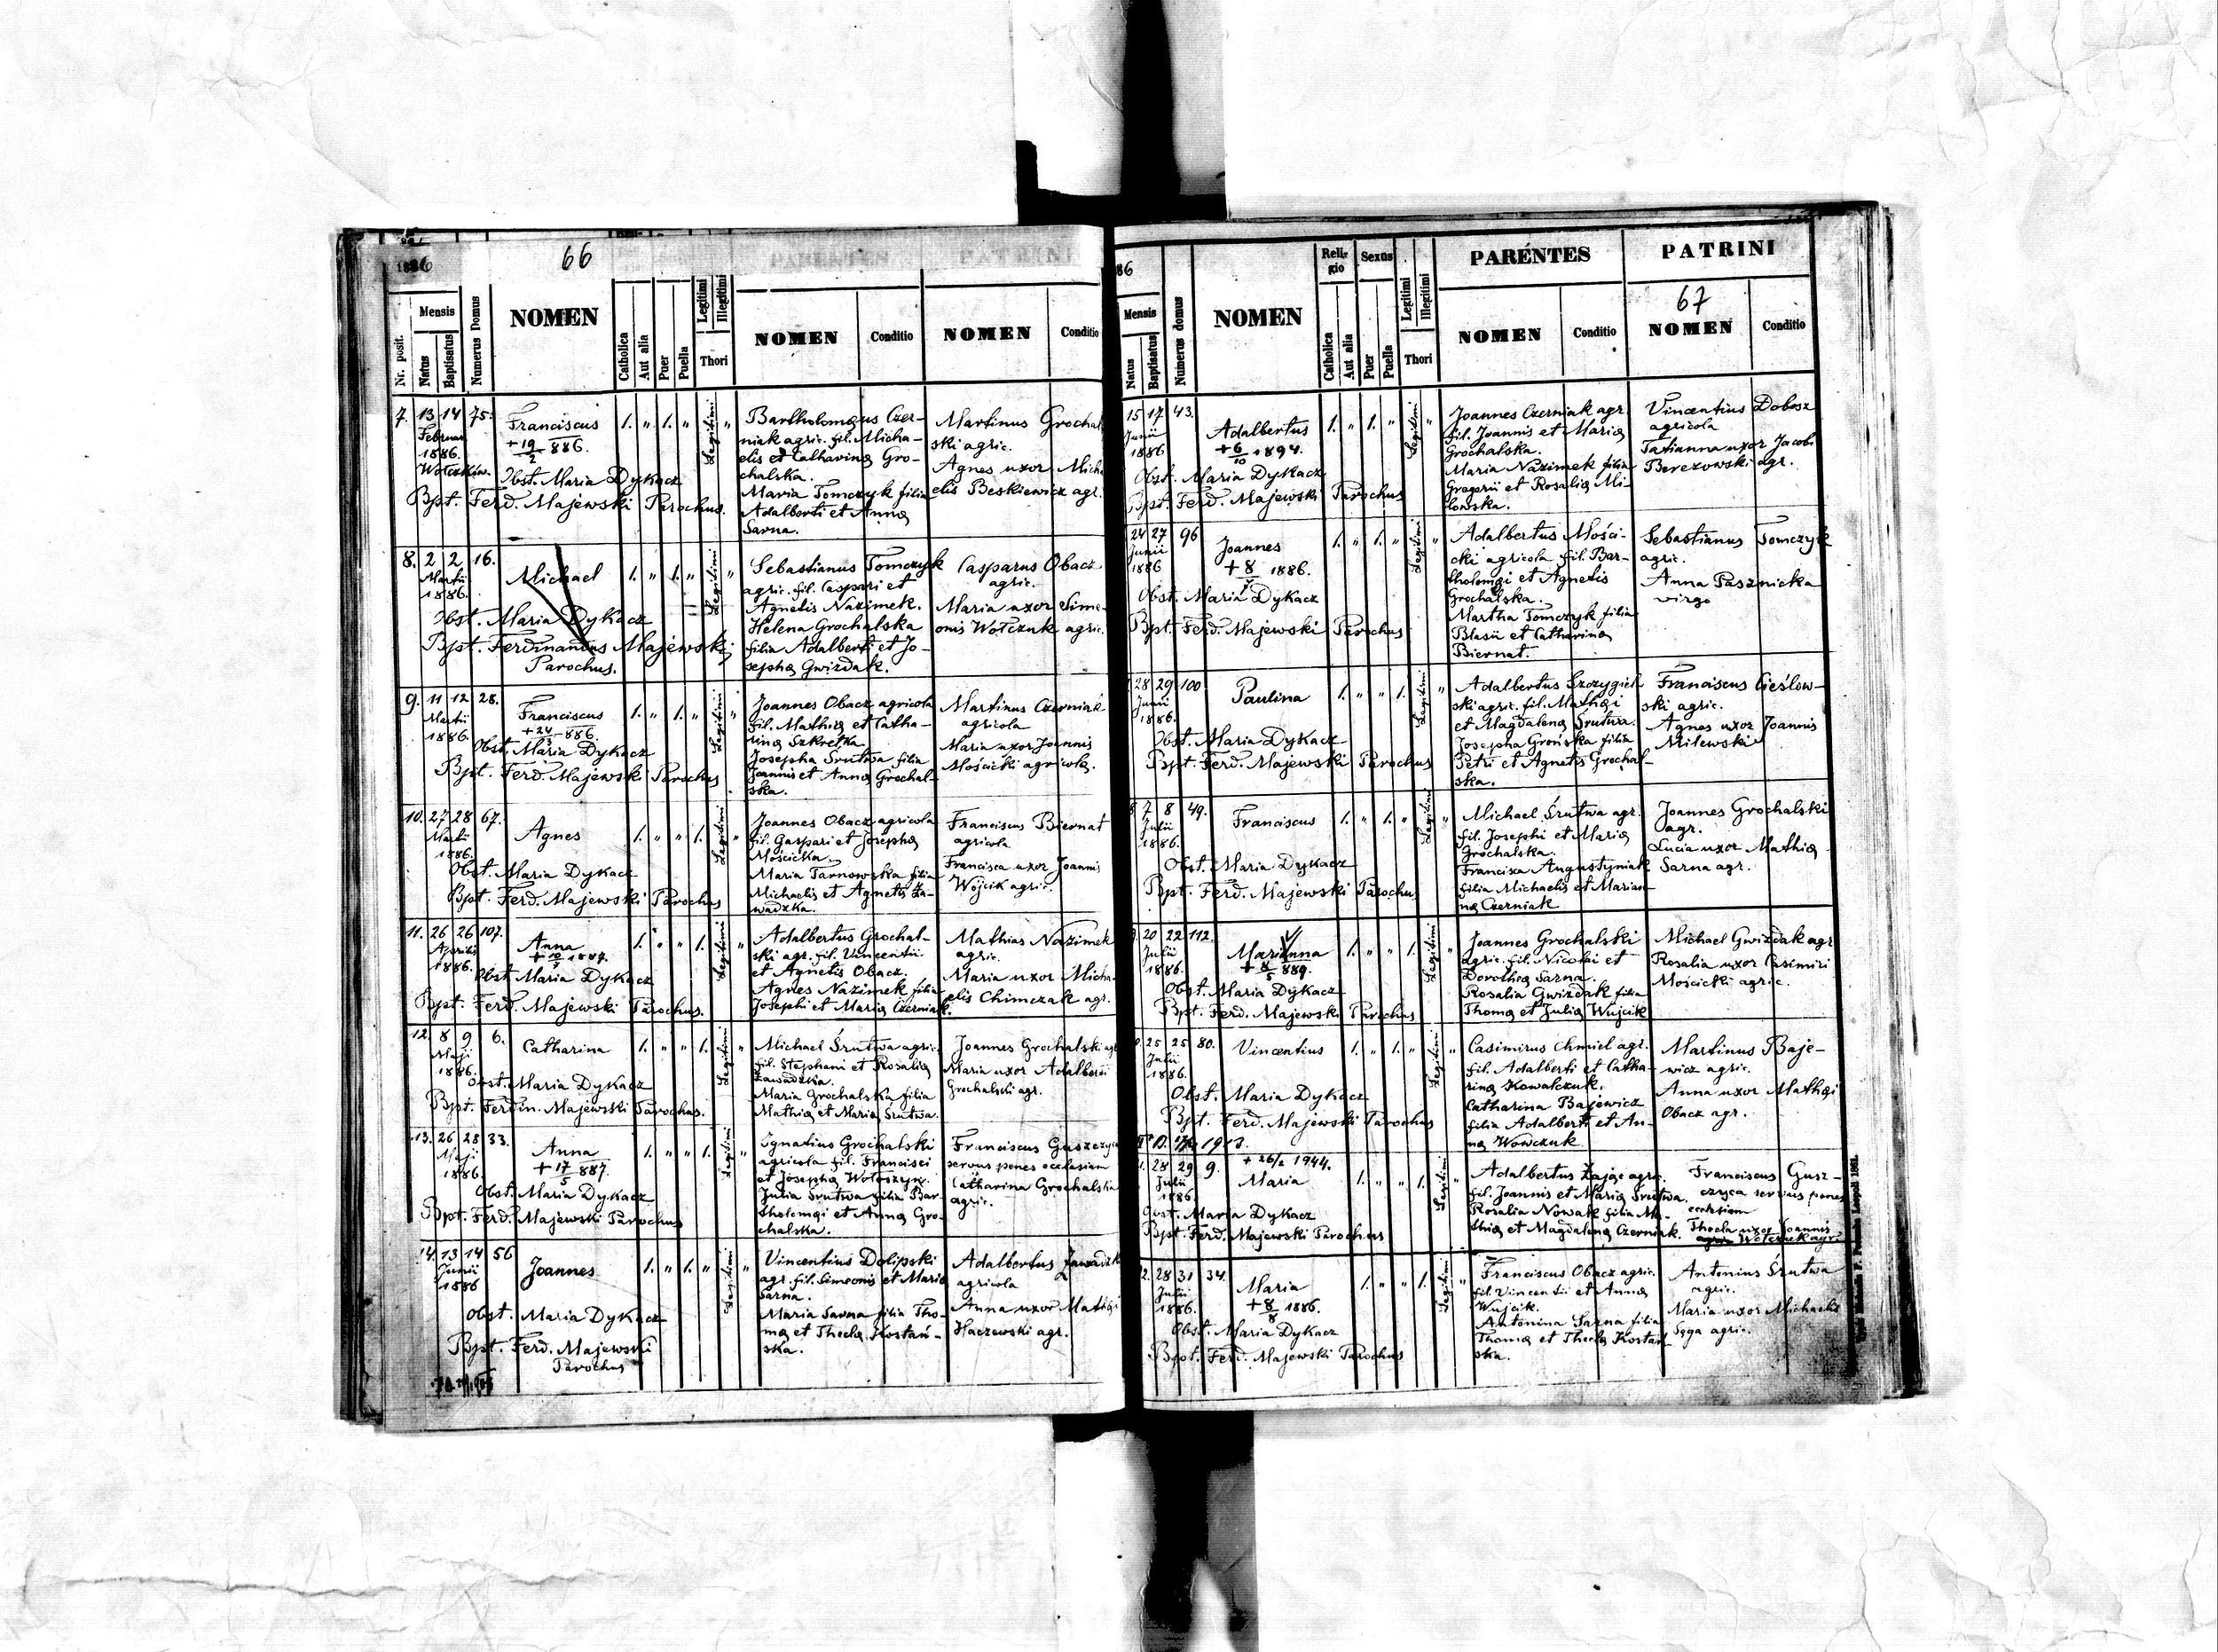 1886
66
PARENTES
PATRINI
Nr. posit.
Mensis
Natus
Baptisatus
Numerus Domus
NOMEN
Catholica
Aut alia
Puer
Puella
Legitimi
Illegitimi
Thori
NOMEN
Conditio
NOMEN
Conditio
7. 13 14 75. Franciscus 1. " 1. " Legitimi "
Februar
1886.
+ 19/2 886.
Obst. Maria Dykacz
Bpt. Ferd. Majewski Parochus.
Bartholomæus Czer-
niak agric. fil. Micha-
elis et Catharinæ Gro-
chalska.
Maria Tomczyk filia
Adalberti et Annæ
Sarna.
Martinus Grochal
ski agric.
Agnes uxor Micha
elis Beskiewicz agr.
8. 2 2 16. Michael 1. " 1. " Legitimi "
Martii
1886.
Obst. Maria Dykacz
Bpt. Ferdinandus Majewski
Parochus.
Sebastianus Tomczyk
agric. fil. Caspari et
Agnetis Nazimek.
Helena Grochalska
filia Adalberti et Jo-
sephæ Gwizdak.
Casparus Obacz
agric.
Maria uxor Sime-
onis Wołczuk agric.
9. 11 12 28. Franciscus 1. " 1. " Legitimi "
Martii
1886.
+ 24/3 886.
Obst. Maria Dykacz
Bpt. Ferd. Majewski Parochus
Joannes Obacz agricola
fil. Mathiæ et Catha-
rinæ Szkretka.
Josepha Śrutwa filia
Joannis et Annæ Grochal-
ska.
Martinus Czerniak
agricola
Maria uxor Joannis
Mościcki agricolæ.
10. 27 28 67. Agnes 1. " " 1. Legitimi "
Martii
1886.
Obst. Maria Dykacz
Bpt. Ferd. Majewski Parochus
Joannes Obacz agricola
fil. Gaspari et Josephæ
Mościcka.
Maria Tarnowska filia
Michaelis et Agnetis Za-
wadzka.
Franciscus Biernat
agricola
Francisca uxor Joannis
Wojcik agric.
11. 26 26 107. Anna 1. " " 1. Legitimi "
Aprilis
1886.
Obst. Maria Dykacz
Bpt. Ferd. Majewski Parochus.
Adalbertus Grochal-
ski agr. fil. Vincentii
et Agnetis Obacz.
Agnes Nazimek filia
Josephi et Mariæ Czerniak.
Mathias Nazimek
agric.
Maria uxor Micha-
elis Chimczak agr.
12. 8 9 6. Catharina 1. " " 1. Legitimi "
Maji
1886.
Obst. Maria Dykacz
Bpt. Ferdin. Majewski Parochus.
Michael Śrutwa agric.
fil. Stephani et Rosaliæ
Zawadzka.
Maria Grochalska filia
Mathiæ et Mariæ Śrutwa.
Joannes Grochalski agr
Maria uxor Adalberti
Grochalski agr.
13. 26 28 33. Anna 1. " " 1. Legitimi "
Maji
1886.
+ 17/5 887.
Obst. Maria Dykacz
Bpt. Ferd. Majewski Parochus
Ignatius Grochalski
agricola fil. Francisci
et Josephæ Wołoszyn.
Julia Śrutwa filia Bar-
tholomæi et Annæ Gro-
chalska.
Franciscus Guszczyca
servus penes ecclesiam
Catharina Grochalska
agric.
14. 13 14 56 Joannes 1. " 1. " Legitimi "
Junii
1886
Obst. Maria Dykacz
Bpt. Ferd. Majewski
Parochus
Vincentius Dolipski
agr. fil. Simeonis et Mariæ
Sarna.
Maria Sarna filia Tho-
mæ et Theclæ Kostań-
ska.
Adalbertus Zawadzk
agricola
Anna uxor Mathæi
Haczewski agr.
86
Mensis
Natus
Baptisatus
Numerus domus
NOMEN
Religio
Catholica
Aut alia
Sexus
Puer
Puella
Legitimi
Illegitimi
Thori
PARENTES
NOMEN
Conditio
PATRINI
67
NOMEN
Conditio
15 17 43. Adalbertus 1. " 1. " Legitimi "
Junii
1886
+ 6/10 1894.
Obst. Maria Dykacz
Bpst. Ferd. Majewski Parochus
Joannes Czerniak agr.
fil. Joannis et Mariæ
Grochalska.
Maria Nazimek filia
Gregorii et Rosaliæ Mi-
lowska.
Vincentius Dobosz
agricola
Tatianna uxor Jacobi
Berezowski agr.
24 27 96 Joannes 1. " 1. " Legitimi "
Junii
1886
Obst. Maria Dykacz
Bpt. Ferd. Majewski Parochus
Adalbertus Mości-
cki agricola fil. Bar-
tholomæi et Agnetis
Grochalska.
Martha Tomczyk filia
Blasii et Catharinæ
Biernat.
Sebastianus Tomczyk
agric.
Anna Pasznicka
virgo
28 29 100 Paulina 1. " " 1. Legitimi "
Junii
1886.
Obst. Maria Dykacz
Bpt. Ferd. Majewski Parochus
Adalbertus Szczygiel-
ski agric. fil. Mathæi
et Magdalenæ Śrutwa.
Josepha Grońska filia
Petri et Agnetis Grochal-
ska.
Franciscus Cieślow-
ski agric.
Agnes uxor Joannis
Milewski
7 8 49. Franciscus 1. " 1. " Legitimi "
Julii
1886.
Obst. Maria Dykacz
Bpt. Ferd. Majewski Parochus
Michael Śrutwa agr.
fil. Josephi et Mariæ
Grochalska.
Francisca Augustyniak
filia Michaelis et Marian-
næ Czerniak
Joannes Grochalski
agr.
Lucia uxor Mathiæ
Sarna agr.
20 22 112. Marianna 1. " " 1. Legitimi "
Julii
1886.
+ 8/5 889.
Obst. Maria Dykacz
Bpt. Ferd. Majewski Parochus
Joannes Grochalski
agric. fil. Nicolai et
Dorotheæ Sarna.
Rosalia Gwizdak filia
Thomæ et Juliæ Wujcik
Michael Gwizdak agr
Rosalia uxor Casimiri
Mościcki agric.
25 25 80. Vincentius 1. " 1. " Legitimi "
Julii
1886.
Obst. Maria Dykacz
Bpt. Ferd. Majewski Parochus
Casimirus Chmiel agr.
fil. Adalberti et Catha-
rinæ Kowalczuk.
Catharina Bajewicz
filia Adalberti et An-
næ Wowczuk
Martinus Baje-
wicz agric.
Anna uxor Mathæi
Obacz agr.
28 29 9. + 26/2 1944.
Maria 1. " " 1. Legitimi "
Julii
1886.
Obst. Maria Dykacz
Bpt. Ferd. Majewski Parochus
Adalbertus Zając agric.
fil. Joannis et Mariæ Śrutwa.
Rosalia Nowak filia Ma-
thiæ et Magdalenæ Czerniak.
Franciscus Gusz-
czyca servus penes
ecclesiam
Thecla uxor Joannis
28 31 34. Maria 1. " " 1. Legitimi "
Julii
1886.
+ 8/8 1886.
Obst. Maria Dykacz
Bpt. Ferd. Majewski Parochus
Franciscus Obacz agric.
fil. Vincentii et Annæ
Wujcik.
Antonina Sarna filia
Thomæ et Theclæ Kostań
ska.
Antonius Śrutwa
agric.
Maria uxor Michaelis
Sęga agric.